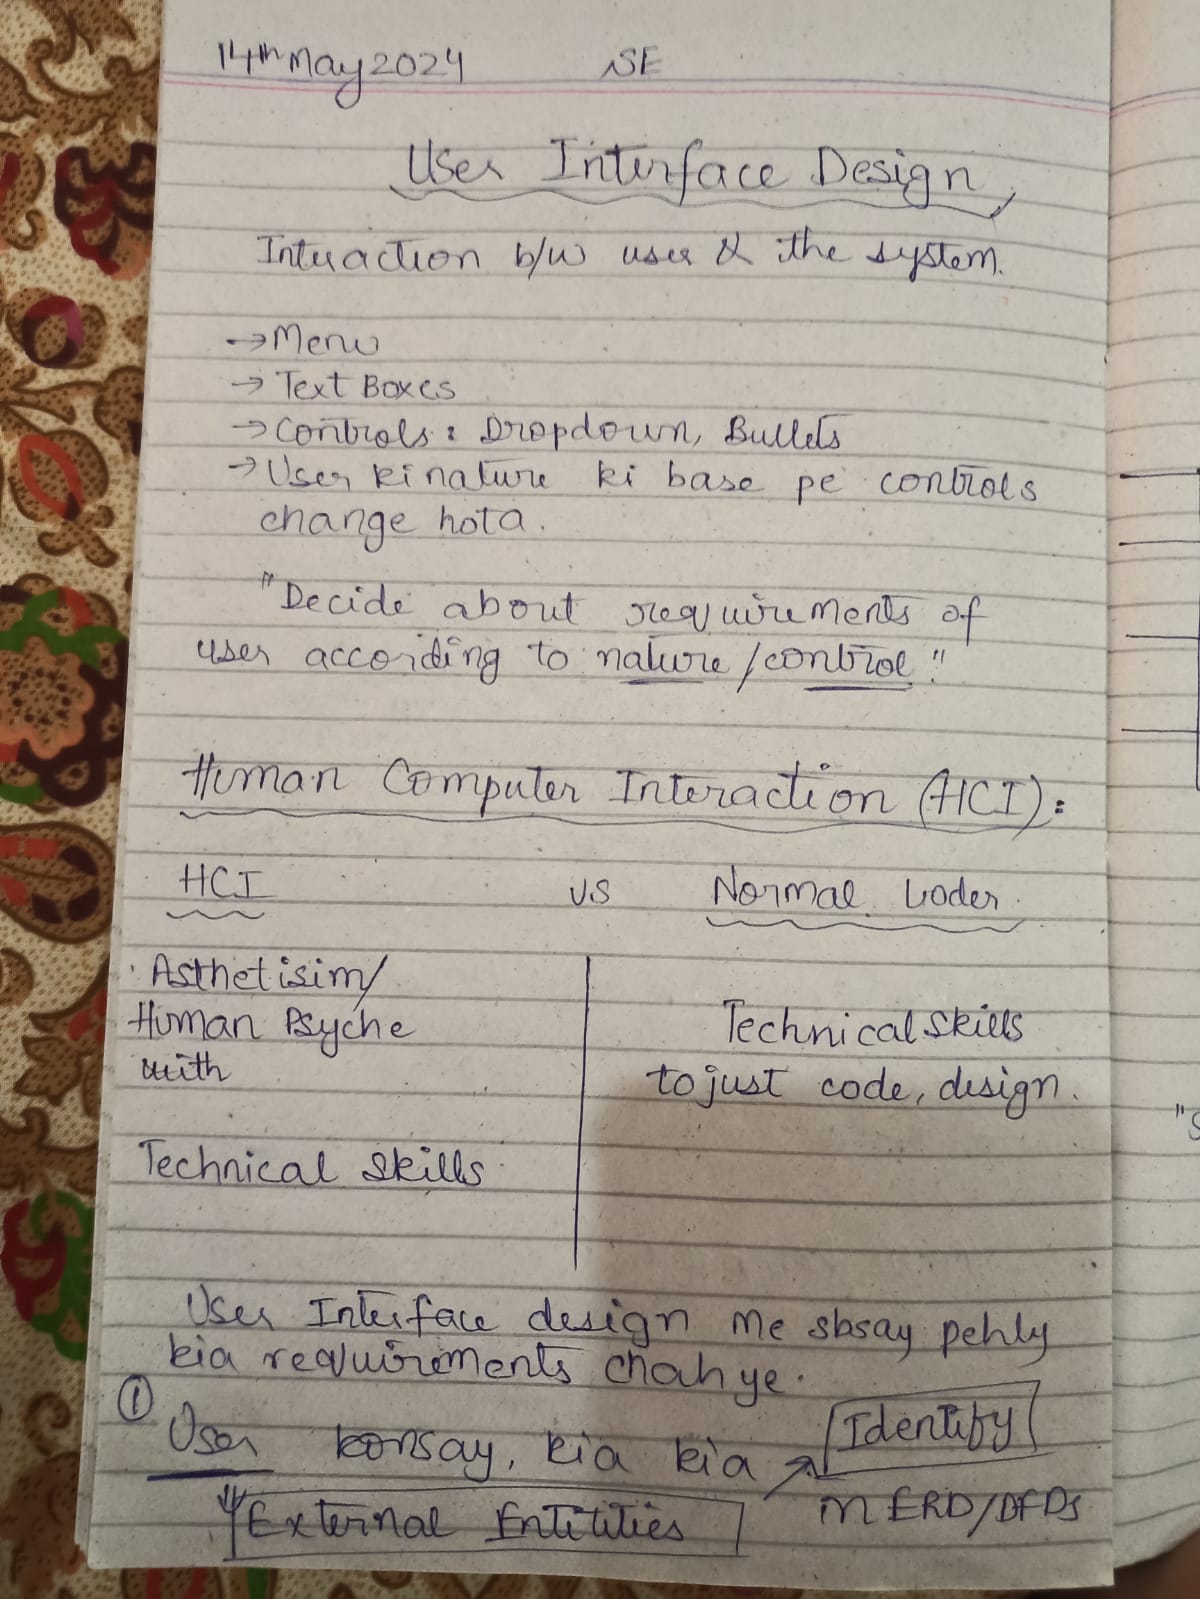 14th May 2024 SE
User Interface Design
Interaction b/w user & the system.
→ Menu
→ Text Boxes
→ Controls : Dropdown, Bullets
→ User ki nature ki base pe controls
change hota.
"Decide about requirements of
user according to nature/control"
Human Computer Interaction (HCI):
HCI vs Normal Coder
Asthetisim/
Human Psyche
with
Technical Skills
Technical Skills
to just code, design.
User Interface design me sbsay pehly
kia requirements chahye.
① User konsay, kia kia → Identify
External Entitities in ERD/DFDs
"S